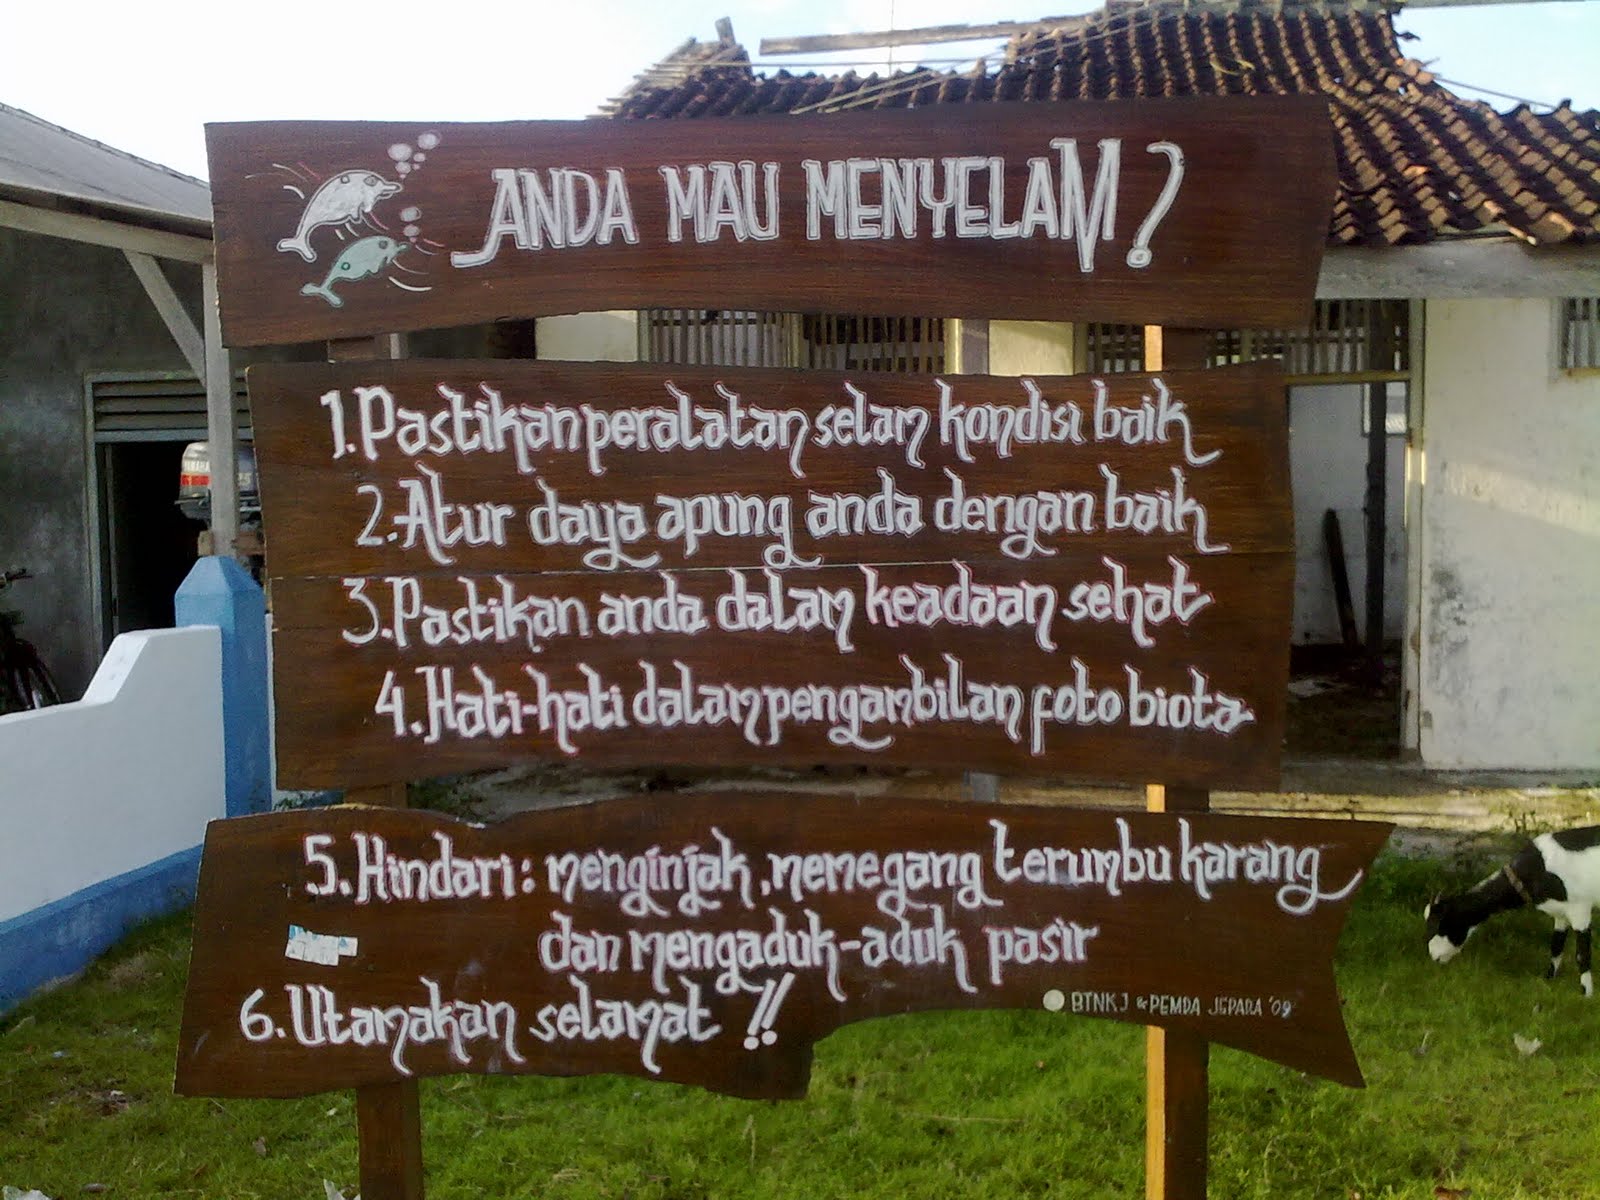 ANDA MAU MENYELAM?
1. Pastikan peralatan selam kondisi baik
2. Atur daya apung anda dengan baik
3. Pastikan anda dalam keadaan sehat
4. Hati-hati dalam pengambilan foto biota
5. Hindari: menginjak, memegang terumbu karang
dan mengaduk-aduk pasir
6. Utamakan selamat !!
BTNKJ & PEMDA JEPARA '09